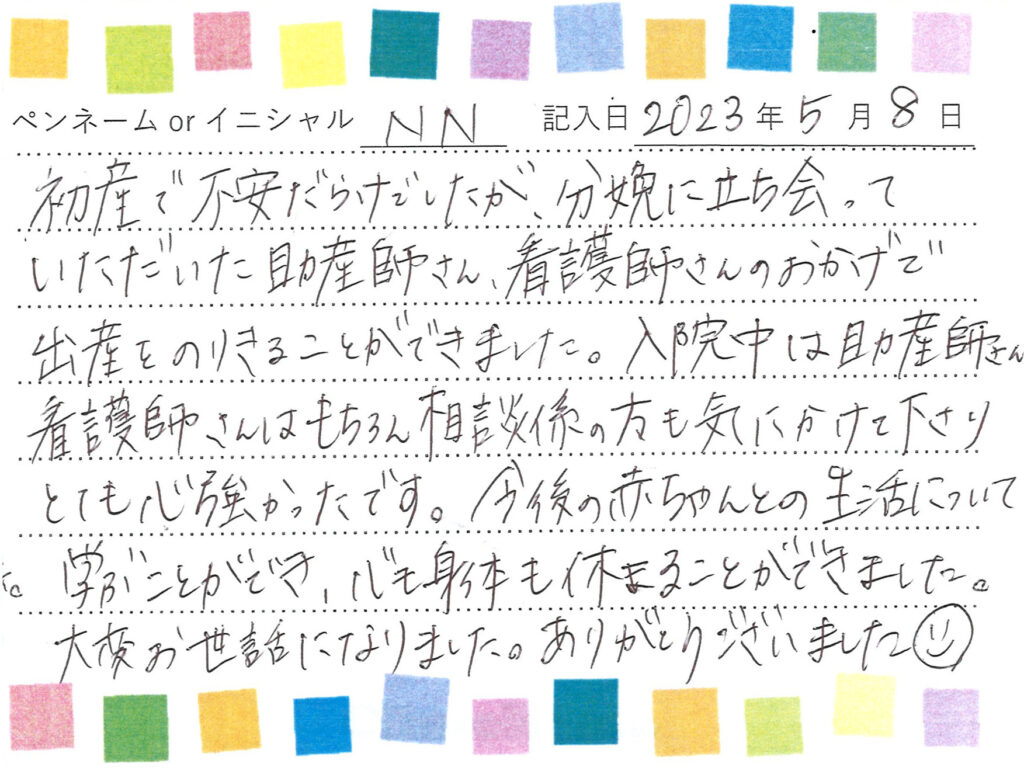 ペンネーム or イニシャル NN 記入日 2023年5月8日
初産で不安だらけでしたが、分娩に立ち会って
いただいた助産師さん、看護師さんのおかげで
出産をのりきることができました。入院中は助産師さん
看護師さんはもちろん相談係の方も気にかけて下さり
とても心強かったです。今後の赤ちゃんとの生活について
学ぶことができ、心も身体も休まることができました。
大変お世話になりました。ありがとうございました